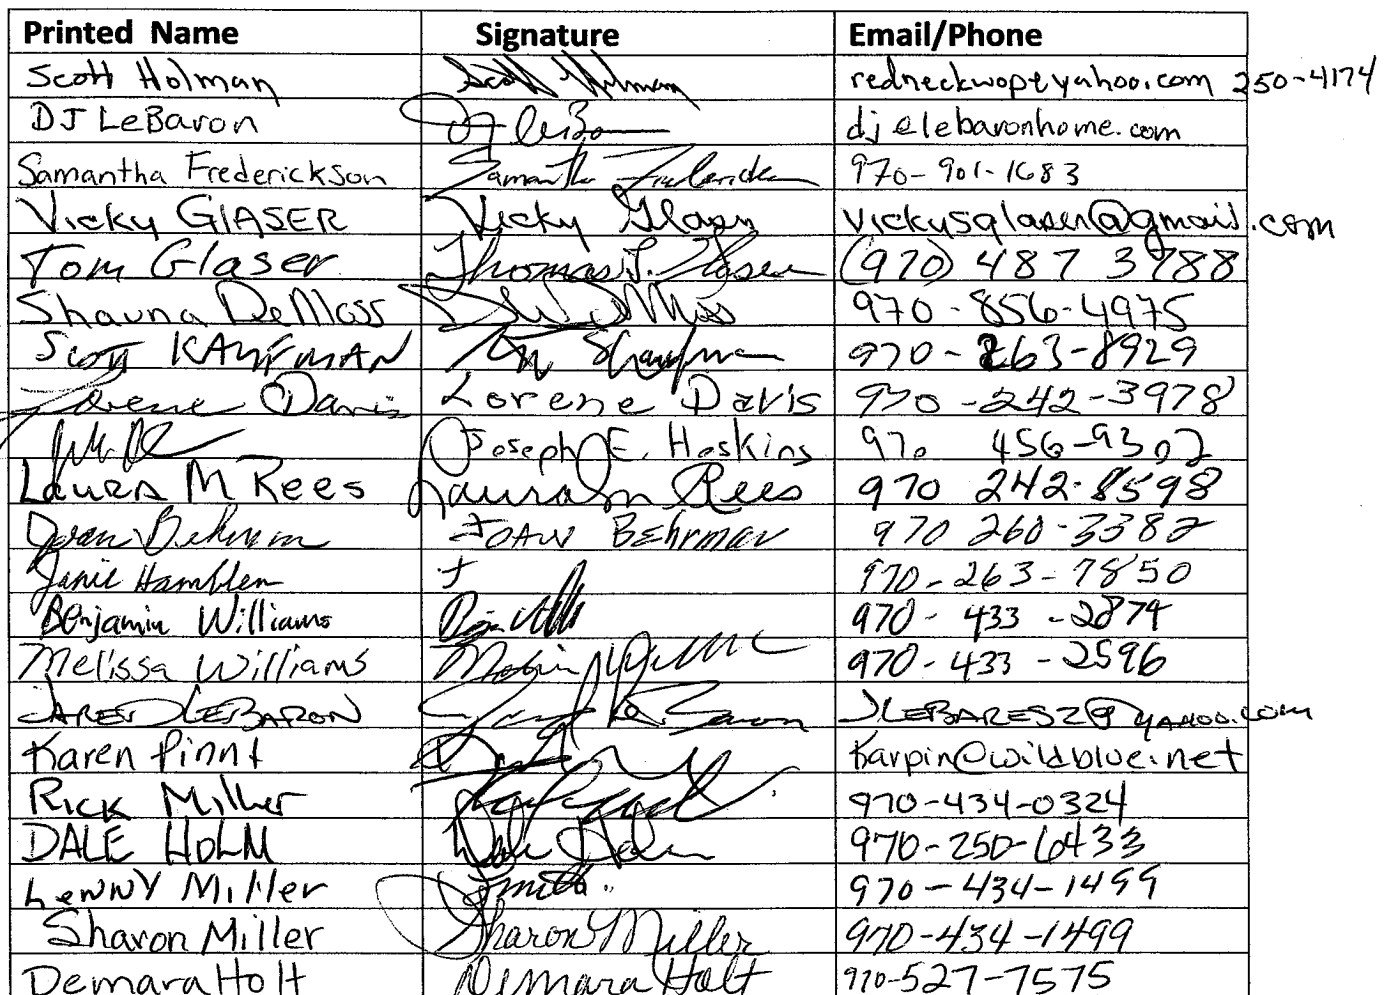 Printed Name Signature Email/Phone
Scott Holman Scott Holman redneckwop@yahoo.com 250-4174
DJ LeBaron DJ LeBaron dj@lebaronhome.com
Samantha Frederickson Samantha Frederickson 970-901-1683
Vicky GLASER Vicky Glaser vickysglaser@gmail.com
Tom Glaser Thomas S. Glaser (970) 487 3788
Shauna DeMoss 970-856-4975
Scott KAUFMAN 970-263-8929
Lorene Davis Lorene Davis 970-242-3978
Joseph E. Hoskins 970 456-9302
Laura M Rees Laura M Rees 970 242-8598
Joan Behrman JOAN Behrman 970 260-3382
Janie Hamblen 970-263-7850
Benjamin Williams 970-433-2874
Melissa Williams 970-433-2596
JARED LEBARON JLEBARES2@yahoo.com
Karen Pinnt Karpin@wildblue.net
Rick Miller 970-434-0324
DALE HOLM Dale Holm 970-250-6433
LeNNY Miller 970-434-1499
Sharon Miller Sharon Miller 970-434-1499
Demara Holt Demara Holt 970-527-7575